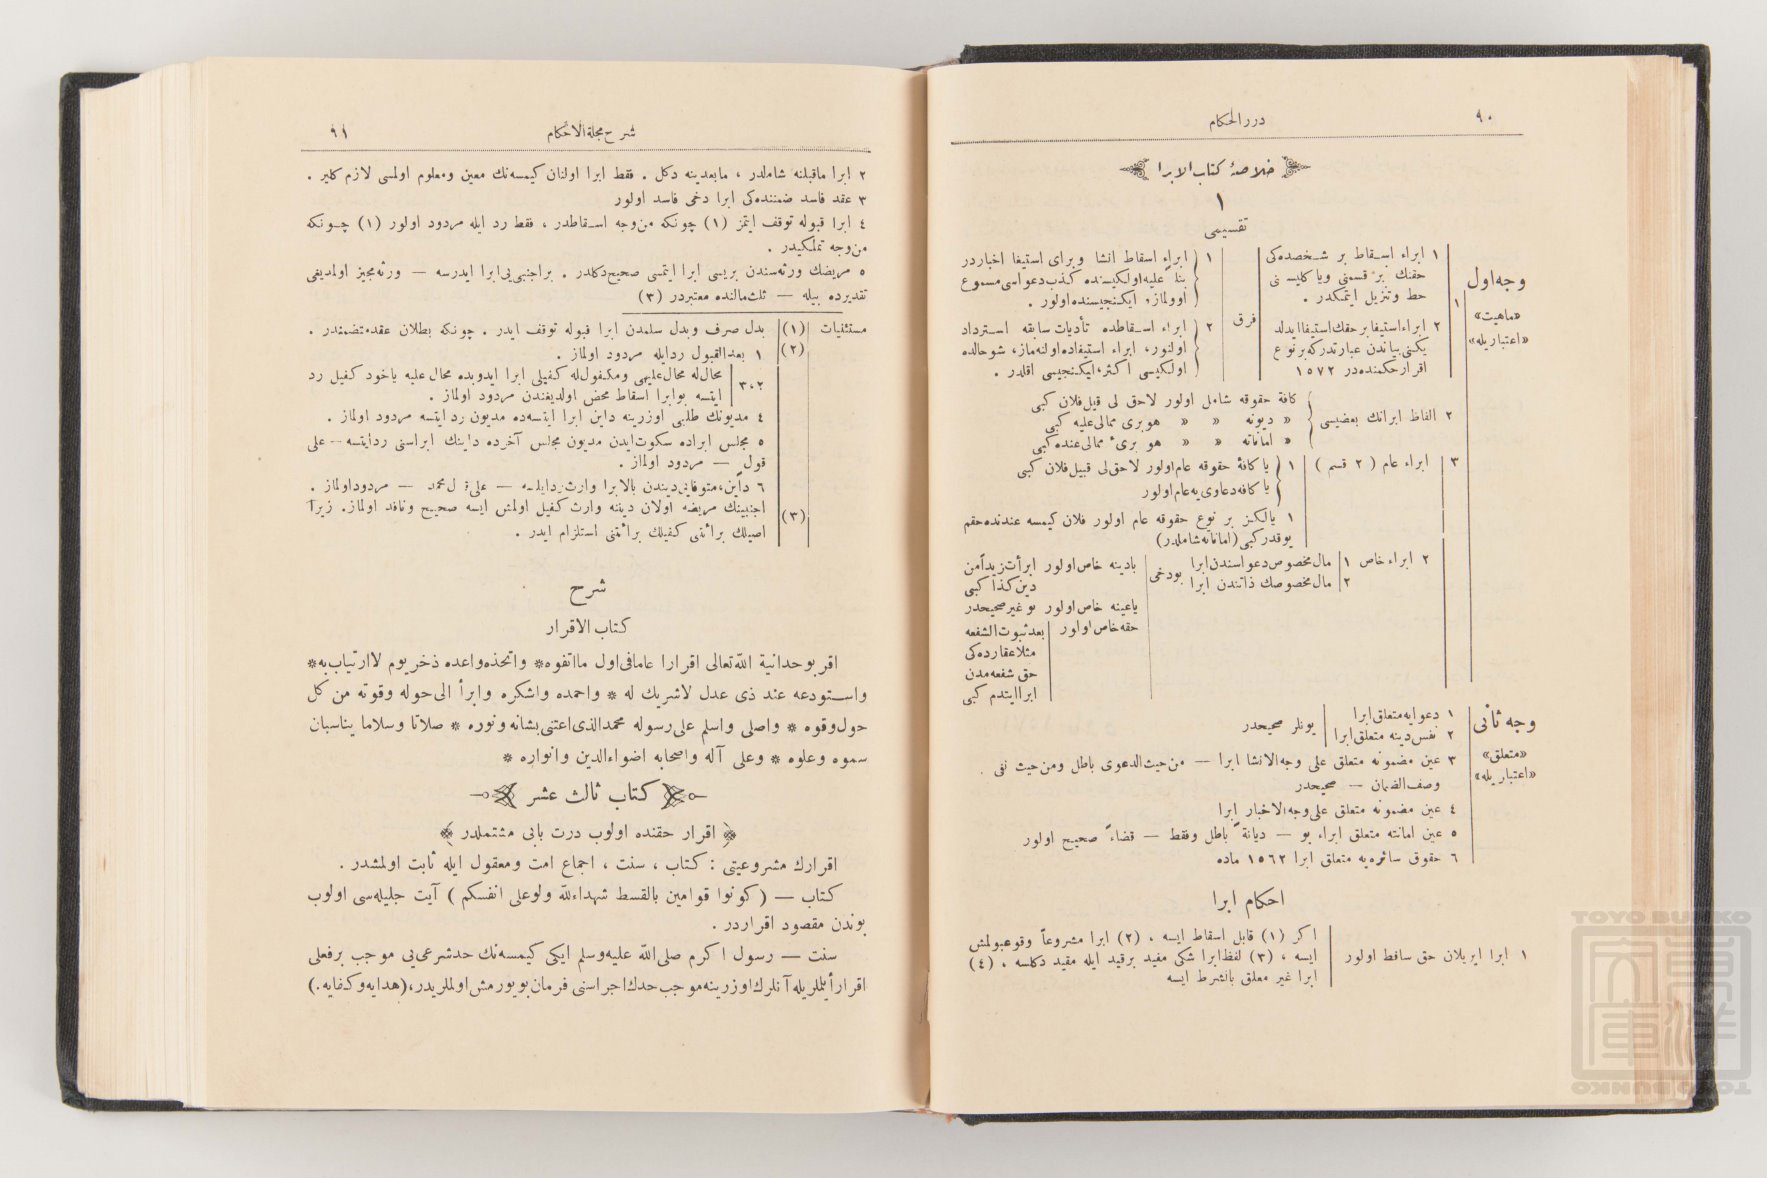 ٩٠
درر الحكام
خلاصۀ كتاب الابرا
١
تقسیمی
وجه اول
«ماهیت»
«اعتباریله»
١
١ ابراء اسقاط بر شخصده‌كی
حقنك بر قسمنی ویا كلیسنی
حط وتنزیل ایتمكدر .
٢ ابراء استیفا بر حقك استیفا ایدلدیكنی بیاندن عبارتدركه بر نوع
اقرار حكمنده در ١٥٧٢
فرق
١ ابراء اسقاط انشا وبرای استیفا اخباردر
بناءً علیه اولكیسنده كذب دعواسی مسموع
اوولماز، ایكنجیسنده اولور .
٢ ابراء اسقاطده تأدیات سابقه استرداد
اولنور، ابراء استیفاده اولنه‌ماز، شو حالده
اولكیسی اكثر، ایكنجیسی اقلدر .
٢ الفاظ ابرانك بعضیسی
كافة حقوقه شامل اولور لاحق لی قبل فلان كبی
« دیونه « « هو بری ممالی علیه كبی
« اماناته « « هو بریء ممالی عنده كبی
٣ ابراء عام ( ٢ قسم )
١ یا كافۀ حقوقه عام اولور لا حق لی قبیل فلان كبی
یا كافه دعاوی‌یه عام اولور
١ یالكز بر نوع حقوقه عام اولور فلان كیمسه عندنده حقم
یوقدر كبی (اماناته شاملدر)
٢ ابراء خاص
١ مال مخصوص دعواسندن ابرا
٢ مال مخصوصك ذاتندن ابرا
بودخی
یا دینه خاص اولور ابرأت زیداً من
دین كذا كبی
یا عینه خاص اولور بو غیر صحیحدر
حقه خاص اولور
بعد ثبوت الشفعه
مثلا عقارده‌كی
حق شفعه‌مدن
ابرا ایتدم كبی
وجه ثانی
«متعلق»
«اعتباریله»
١ دعوایه متعلق ابرا
٢ نفس دینه متعلق ابرا
بونلر صحیحدر
٣ عین مضمونه متعلق علی وجه الانشا ابرا — من حیث الدعوی باطل ومن حیث نفی
وصف الضمان — صحیحدر
٤ عین مضمونه متعلق علی وجه الاخبار ابرا
٥ عین امانته متعلق ابراء بو — دیانةً باطل وفقط — قضاءً صحیح اولور
٦ حقوق سائره‌یه متعلق ابرا ١٥٦٢ ماده
احكام ابرا
١ ابرا ایریلان حق ساقط اولور
اكر (١) قابل اسقاط ایسه ، (٢) ابرا مشروعاً وقوعبولمش
ایسه ، (٣) لفظ ابرا شكی مفید برقید ایله مقید دكلسه ، (٤)
ابرا غیر معلق بالشرط ایسه
شرح مجلة الاحكام
٩١
٢ ابرا ماقبلنه شاملدر ، مابعدینه دكل . فقط ابرا اولنان كیمسه‌نك معین ومعلوم اولمسی لازم كلیر .
٣ عقد فاسد ضمننده‌كی ابرا دخی فاسد اولور
٤ ابرا قبوله توقف ایتمز (١) چونكه من وجه اسقاطدر ، فقط رد ایله مردود اولور (١) چونكه
من وجه تملیكیدر .
٥ مریضك ورثه‌سندن بریسی ابرا ایتمسی صحیح دكلدر . بر اجنبی‌یی ابرا ایدرسه — ورثه مجیز اولمدیغی
تقدیرده بیله — ثلث مالنده معتبردر (٣)
مستثنیات
(١) بدل صرف وبدل سلمدن ابرا قبوله توقف ایدر . چونكه بطلان عقد متضمندر .
(٢) ١ بعد القبول رد ایله مردود اولماز .
٢،٣ محال له محال علیهی ومكفول له كفیلی ابرا ایدوبده محال علیه یاخود كفیل رد
ایتسه بو ابرا اسقاط محض اولدیغندن مردود اولماز .
٤ مدیونك طلبی اوزرینه داین ابرا ایتسه‌ده مدیون رد ایتسه مردود اولماز .
٥ مجلس ابراده سكوت ایدن مدیون مجلس آخرده داینك ابراسنی رد ایتسه — علی
قول — مردود اولماز .
٦ داین، متوفایی دیندن بالابرا وارث رد ایلسه — علی قول محمد — مردود اولماز .
(٣) اجنبینك مریضه اولان دیننه وارث كفیل اولمش ایسه صحیح ونافذ اولماز. زیرا
اصیلك برائتی كفیلك برائتنی استلزام ایدر .
شرح
كتاب الاقرار
اقر بوحدانیة الله تعالی اقرارا عامافی اول مااتفوه* واتخذه واعده ذخر یوم لاارتیاب به*
واستودعه عند ذی عدل لاشریك له * واحمده واشكره وابرأ الی حوله وقوته من كل
حول وقوه * واصلی واسلم علی رسوله محمد الذی اعتنی بشانه ونوره * صلاتا وسلاما یناسبان
سموه وعلوه * وعلی آله واصحابه اضواء الدین وانواره *
كتاب ثالث عشر
اقرار حقنده اولوب درت بابی مشتملدر
اقرارك مشروعیتی : كتاب ، سنت ، اجماع امت ومعقول ایله ثابت اولمشدر .
كتاب — ( كونوا قوامین بالقسط شهداء لله ولو علی انفسكم ) آیت جلیله‌سی اولوب
بوندن مقصود اقراردر .
سنت — رسول اكرم صلی الله علیه وسلم ایكی كیمسه‌نك حد شرعی‌یی موجب بر فعلی
اقرار أیلملریله آنلرك اوزرینه موجب حدك اجراسنی فرمان بویورمش اولملریدر، (هدایه وكفایه .)
TOYO BUNKO